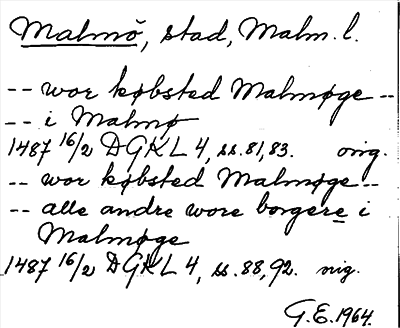 Malmö, stad, Malm. l.
-- wor købsted Malmøge --
-- i Malmø
1487 16/2 DGKL 4, ss. 81, 83. orig.
-- wor købsted Malmøge --
-- alle andre wore borgere i
Malmøge
1487 16/2 DGKL 4, ss. 88, 92. orig.
G.E. 1964.